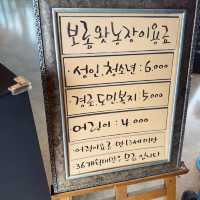 보롬왓농장이용료
·성인,청소년 : 6,000
경로,도민,복지 5,000
어린이 : 4,000
·어린이요금 만13세 미만
36개월미만은 무료 입니다